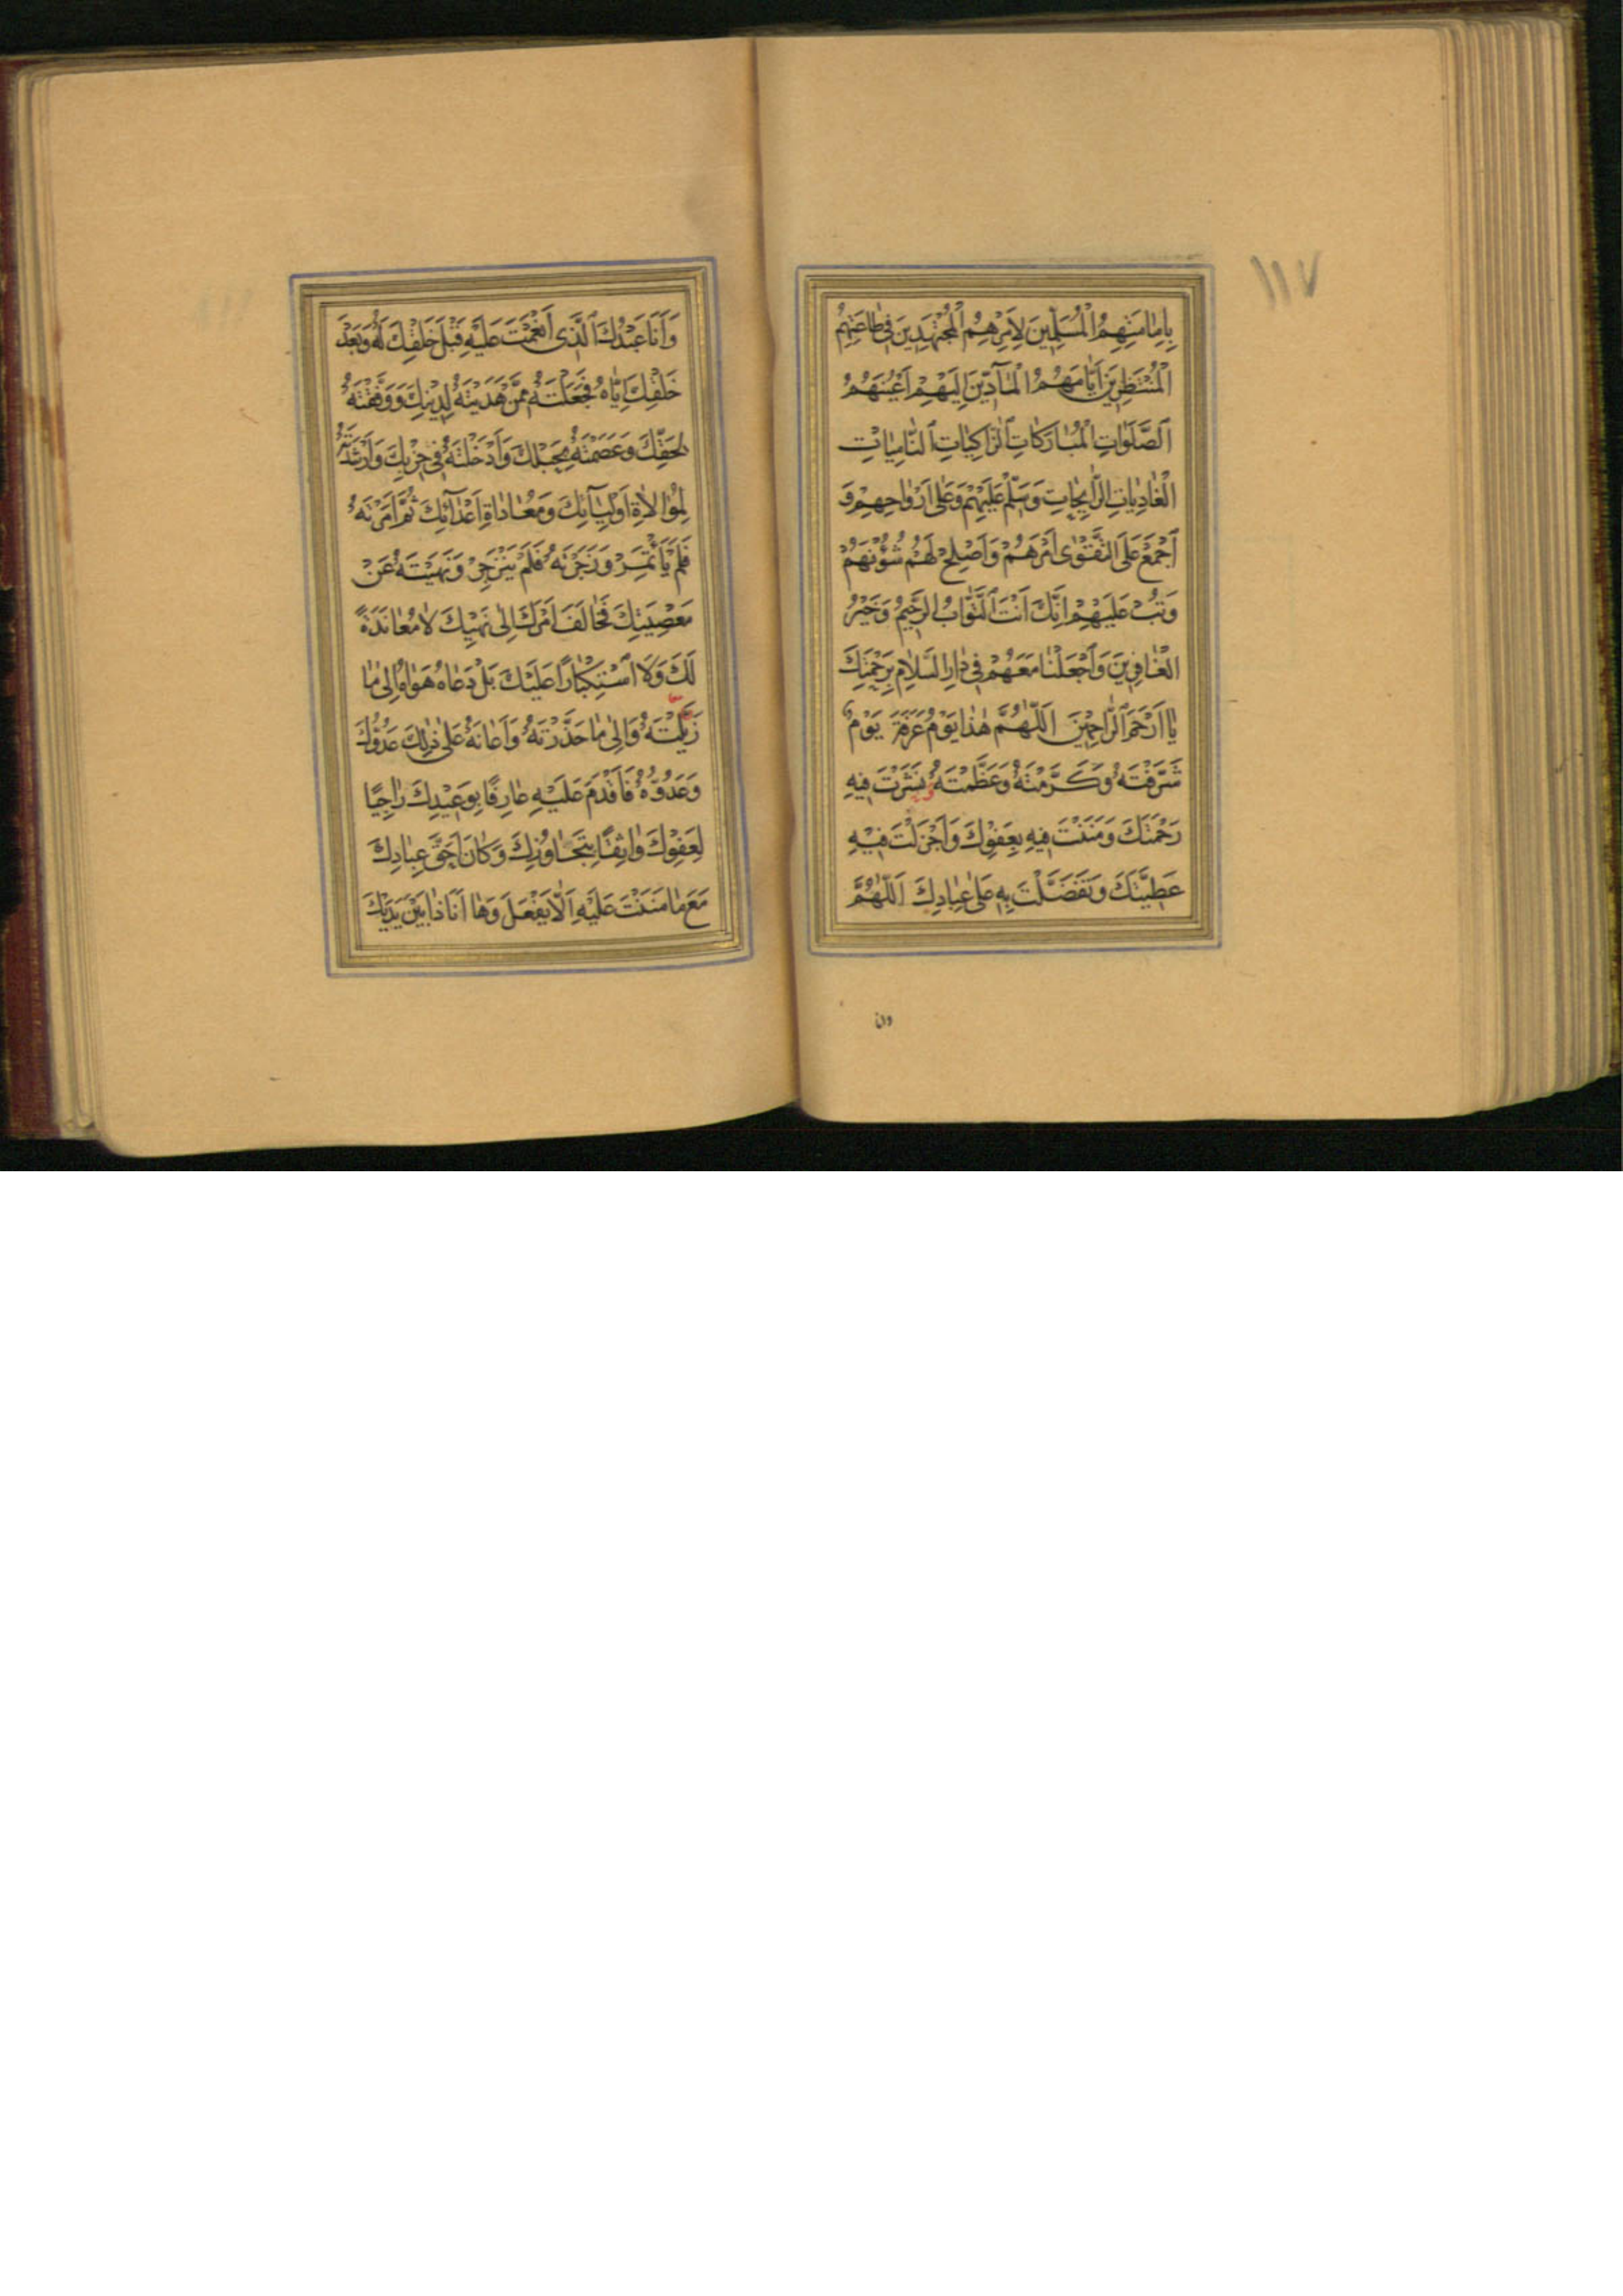 ١١٧
بِاِمٰامَتِهِمُ الْمُسَلِّمِينَ لِاَمْرِهِمُ الْمُجْتَهِدِينَ فِى طٰاعَتِهِمُ
الْمُنْتَظِرِينَ اَيّٰامَهُمُ الْمٰآدّينَ اِلَيْهِمْ اَعْيُنَهُمُ
الصَّلَوٰاتِ الْمُبٰارَكٰاتِ الزّٰاكِيٰاتِ النّٰامِيٰاتِ
الْغٰادِيٰاتِ الرّٰايِحٰاتِ وَسَلِّمْ عَلَيْهِمْ وَعَلىٰ اَرْوٰاحِهِمْ وَ
اَجْمِعْ عَلَى التَّقْوٰى اَمْرَهُمْ وَاَصْلِحْ لَهُمْ شُؤُنَهُمْ
وَتُبْ عَلَيْهِمْ اِنَّكَ اَنْتَ التَّوّٰابُ الرَّحِيمُ وَخَيْرُ
الْغٰافِرِينَ وَاجْعَلْنٰا مَعَهُمْ فِى دٰارِ السَّلاٰمِ بِرَحْمَتِكَ
يٰا اَرْحَمَ الرّٰاحِمِينَ اَللّٰهُمَّ هٰذٰا يَوْمُ عَرَفَةَ يَوْمٌ
شَرَّفْتَهُ وَكَرَّمْتَهُ وَعَظَّمْتَهُ نَشَرْتَ فِيهِ
رَحْمَتَكَ وَمَنَنْتَ فِيهِ بِعَفْوِكَ وَاَجْزَلْتَ فِيْهِ
عَطِيَّتَكَ وَتَفَضَّلْتَ بِهِ عَلىٰ عِبٰادِكَ اَللّٰهُمَّ
وانا
وَاَنَا عَبْدُكَ الَّذِى اَنْعَمْتَ عَلَيْهِ قَبْلَ خَلْقِكَ لَهُ وَبَعْدَ
خَلْقِكَ اِيّٰاهُ فَجَعَلْتَهُ مِمَّنْ هَدَيْتَهُ لِدِينِكَ وَوَفَّقْتَهُ
لِحَقِّكَ وَعَصَمْتَهُ بِحَبْلِكَ وَاَدْخَلْتَهُ فِى حِزْبِكَ وَاَرْشَدْتَهُ
لِمُوٰالاٰةِ اَوْلِيٰآئِكَ وَمُعٰادٰاةِ اَعْدٰآئِكَ ثُمَّ اَمَرْتَهُ
فَلَمْ يَأْتَمِرْ وَزَجَرْتَهُ فَلَمْ يَنْزَجِرْ وَنَهَيْتَهُ عَنْ
مَعْصِيَتِكَ فَخٰالَفَ اَمْرَكَ اِلىٰ نَهْيِكَ لاٰ مُعٰانَدَةً
لَكَ وَلَا اسْتِكْبٰارًا عَلَيْكَ بَلْ دَعٰاهُ هَوٰاهُ اِلىٰ مٰا
زَيَّلْتَهُ وَاِلىٰ مٰا حَذَّرْتَهُ وَاَعٰانَهُ عَلىٰ ذٰلِكَ عَدُوُّكَ
وَعَدُوُّهُ فَاَقْدَمَ عَلَيْهِ عٰارِفًا بِوَعِيْدِكَ رٰاجِيًا
لِعَفْوِكَ وٰاثِقًا بِتَجٰاوُزِكَ وَكٰانَ اَحَقَّ عِبٰادِكَ
مَعَ مٰا مَنَنْتَ عَلَيْهِ اَلّٰا يَفْعَلَ وَهٰا اَنَا ذٰا بَيْنَ يَدَيْكَ